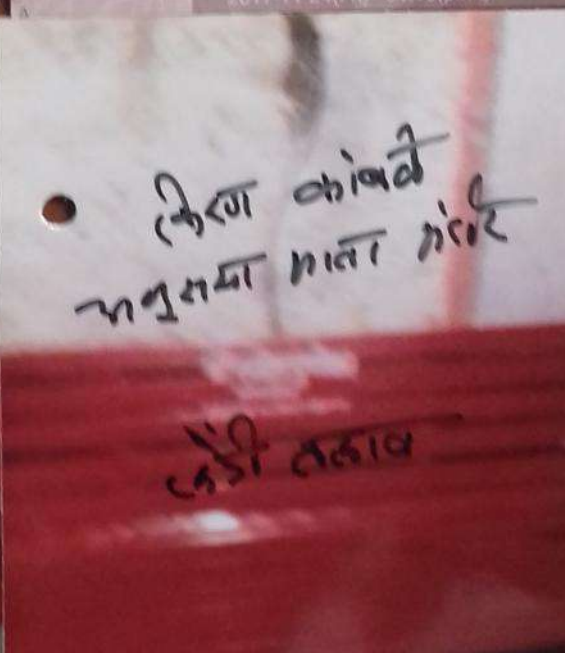 किरण कांबळे
अनुसया माता मंदिर
लेंडी तलाव